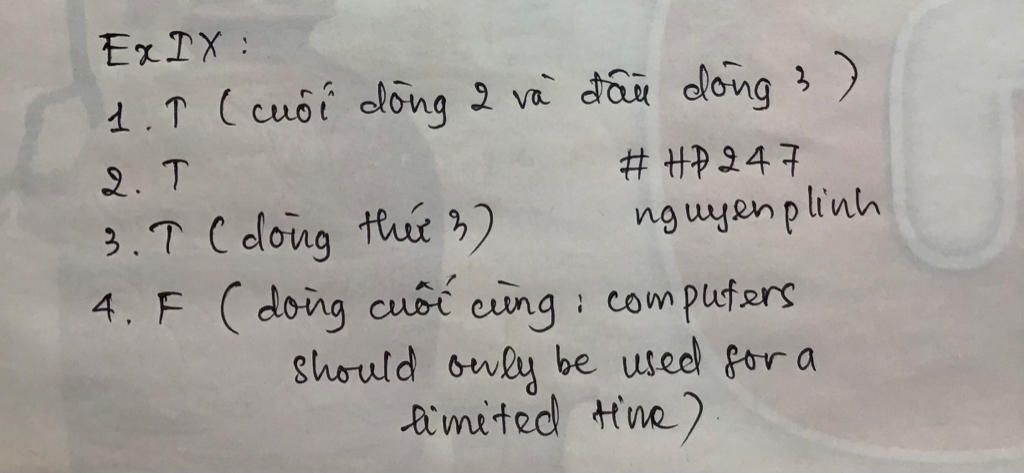 Ex IX :
1. T ( cuối dòng 2 và đầu dòng 3 )
2. T
# HĐ247
nguyenplinh
3. T ( dòng thứ 3)
4. F ( dòng cuối cùng : computers
should only be used for a
limited time)